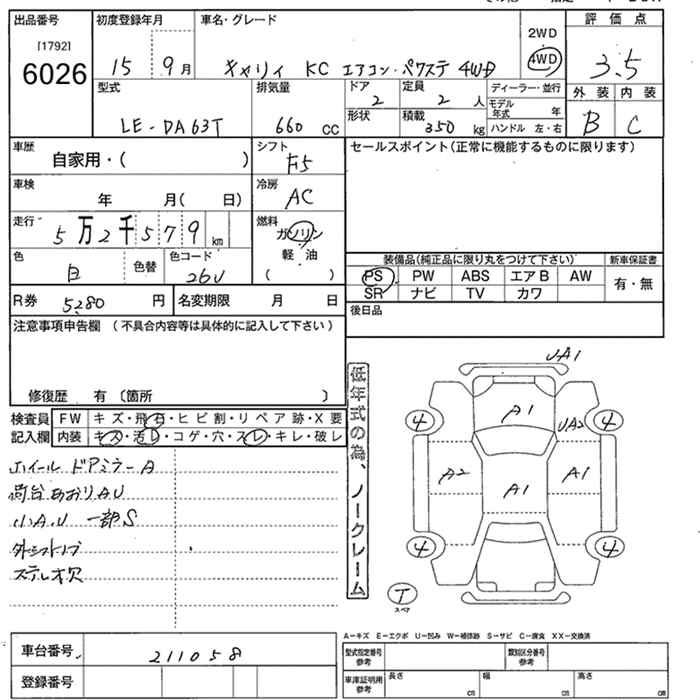 出品番号 初度登録年月 車名・グレード 2WD 評価点
[1792] 6026 15 9月 キャリィ KC エアコン・パワステ 4WD 4WD 3.5
型式 排気量 ドア 定員 ディーラー・並行 外装 内装
LE-DA63T 660 CC 2 2人 モデル年式 年 B C
形状 積載 350 kg ハンドル 左・右
車歴 自家用・( ) シフト F5 セールスポイント(正常に機能するものに限ります)
車検 年 月( 日) 冷房 AC
走行 5万2千579km 燃料 ガソリン
軽油
( )
色 白 色替 色コード 26U 装備品(純正品に限り丸をつけて下さい) 新車保証書
PS PW ABS エアB AW 有・無
SR ナビ TV カワ
R券 5,280 円 名変期限 月 日 後日品
注意事項申告欄 (不具合内容等は具体的に記入して下さい)
修復歴 有 〔箇所 〕
検査員 FW キズ・飛石・ヒビ割・リペア跡・X要
記入欄 内装 キズ・汚レ・コゲ・穴・スレ・キレ・破レ
ホイール ドアミラーA
荷台あおりAU
小A.U 一部S
外シフトノブ
ステレオ欠
低年式の為、ノークレーム
UA1
A1
4 UA2 4
A2 A1 A1
4 4
T
スペア
A－キズ E－エクボ U－凹み W－補修跡 S－サビ C－腐食 XX－交換済
車台番号 211058 型式指定番号 参考 類別区分番号 参考
登録番号 車庫証明用 参考 長さ cm 幅 cm 高さ cm